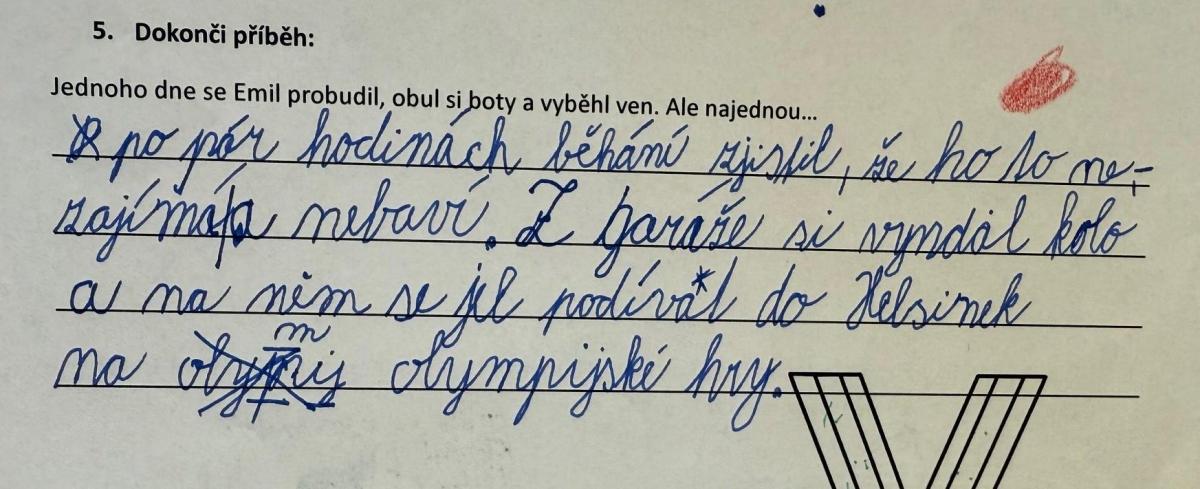 5. Dokonči příběh:
Jednoho dne se Emil probudil, obul si boty a vyběhl ven. Ale najednou...
po pár hodinách běhání zjistil, že ho to ne-
zajímá a nebaví. Z garáže si vyndal kolo
a na něm se jel podívat do Helsinek
na olympijské hry.